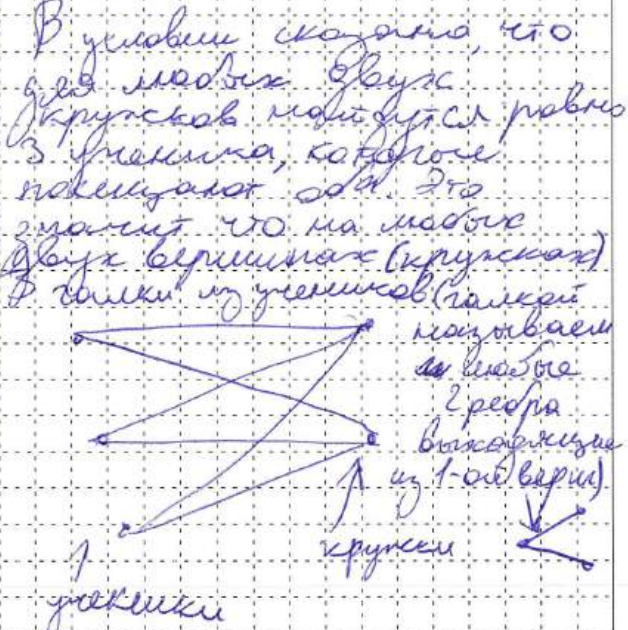 В условии сказано, что
для любых двух
кружков найдутся ровно
3 ученика, которые
посещают оба. Это
значит что на любых
двух вершинах (кружках)
3 галки из учеников (галкой
называем
любые
2 ребра
выходящие
из 1-ой верш)
кружки
ученики